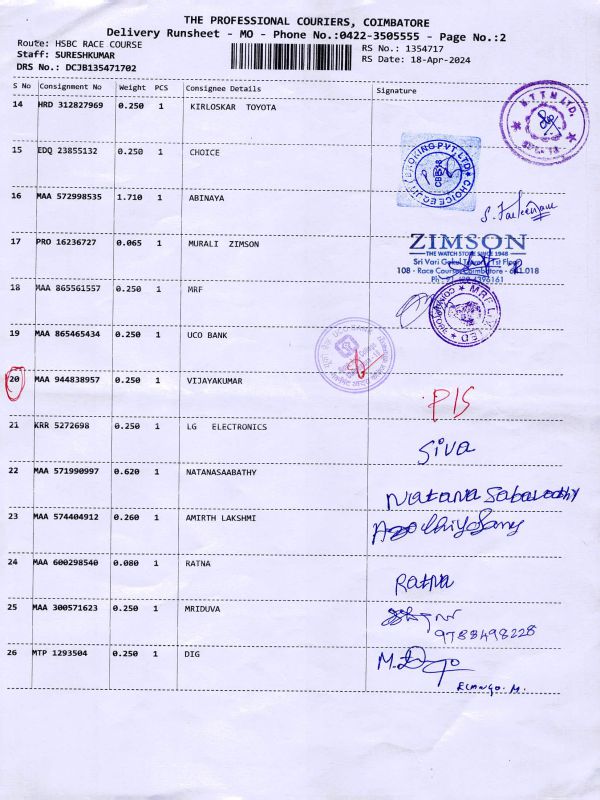 THE PROFESSIONAL COURIERS, COIMBATORE
Delivery Runsheet - MO - Phone No.:0422-3505555 - Page No.:2
Route: HSBC RACE COURSE
RS No.: 1354717
Staff: SURESHKUMAR
RS Date: 18-Apr-2024
DRS No.: DCJB135471702
S No Consignment No Weight PCS Consignee Details Signature
14 HRD 312827969 0.250 1 KIRLOSKAR TOYOTA
15 EDQ 23855132 0.250 1 CHOICE
16 MAA 572998535 1.710 1 ABINAYA
17 PRO 16236727 0.065 1 MURALI ZIMSON
ZIMSON
THE WATCH STORE SINCE 1948
Sri Vari Gokul Tower, 1st Floor
108 - Race Course, Coimbatore - 641 018
18 MAA 865561557 0.250 1 MRF
19 MAA 865465434 0.250 1 UCO BANK
20 MAA 944838957 0.250 1 VIJAYAKUMAR
P/S
21 KRR 5272698 0.250 1 LG ELECTRONICS
Siva
22 MAA 571990997 0.620 1 NATANASAABATHY
23 MAA 574404912 0.260 1 AMIRTH LAKSHMI
24 MAA 600298540 0.080 1 RATNA
Ratna
25 MAA 300571623 0.250 1 MRIDUVA
9788498228
26 MTP 1293504 0.250 1 DIG
ELANGO. M.